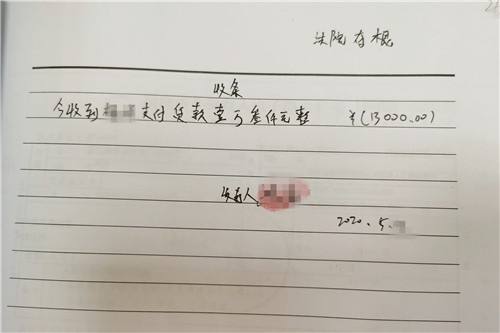 法院存根
收条
今收到 支付货款壹万叁仟元整 ¥(13000.00)
收款人
2020.5.